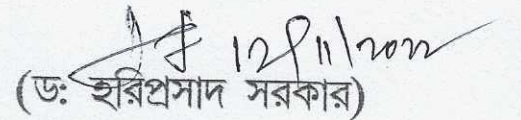 12/11/2022
(ড: হরিপ্রসাদ সরকার)